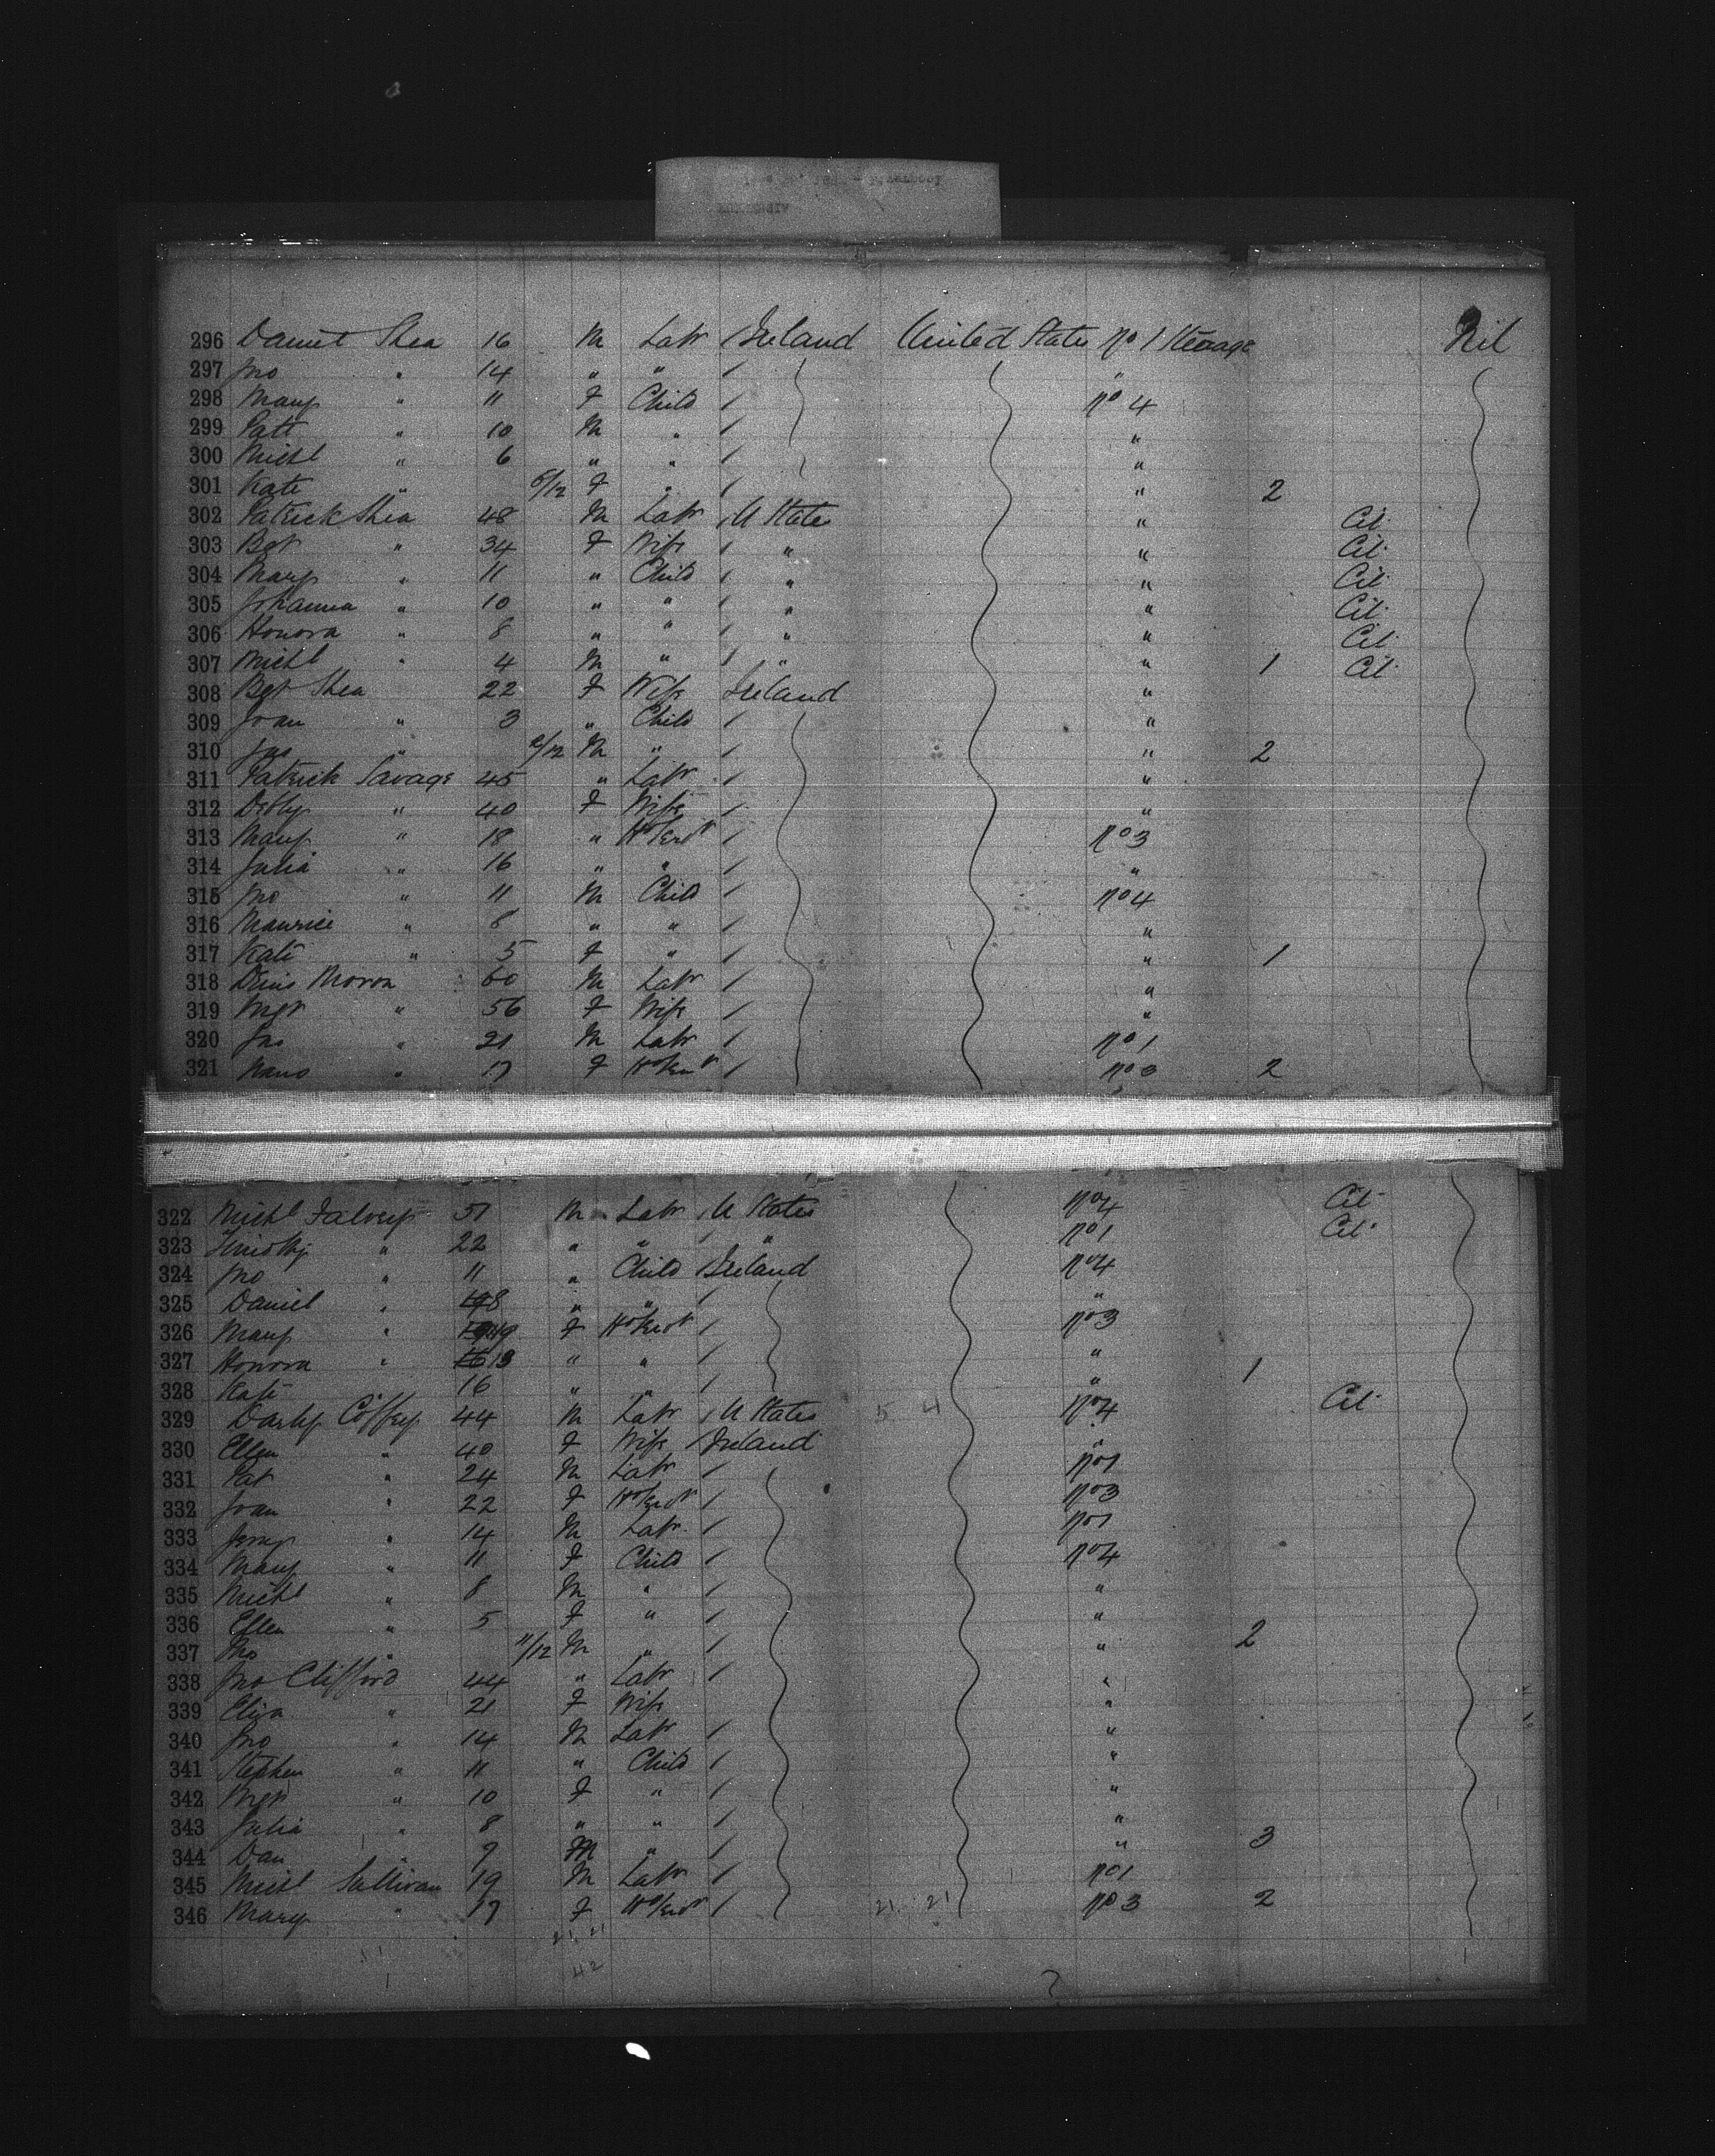 296 Daniel Shea 16 M Labr / Ireland United States No 1 Steerage Nil
297 Jno " 14 " " / "
298 Mary " 11 F Child / No 4
299 Patt " 10 M " / "
300 Michl " 6 " " / "
301 Kate " F " / " 2
302 Patrick Shea 48 M Labr / U States " Cit.
303 Bgt " 34 F Wife / " " Cit.
304 Mary " 11 " Child / " " Cit.
305 Johanna " 10 " " / " " Cit.
306 Honora " 8 " " / " " Cit.
307 Michl " 4 M " / " " 1 Cit.
308 Bgt Shea 22 F Wife Ireland "
309 Joan " 3 " Child / "
310 Jas " M " / " 2
311 Patrick Savage 45 " Labr / "
312 Debby " 40 F Wife / "
313 Mary " 18 " / No 3
314 Julia " 16 " " / "
315 Jno " 11 M Child / No 4
316 Maurice " 8 " " / "
317 Kate " 5 F " / " 1
318 Denis 60 M Labr / "
319 Mgt " 56 F Wife / "
320 Jas " 21 M Labr / No 1
321 " 17 F / No 3 2
322 Michl Falvey 51 M Labr / U States No 4 Cit
323 Timothy " 22 " " / " No 1 Cit.
324 Jno " 11 " Child Ireland No 4
325 Daniel " 8 " " / "
326 Mary " 19 F / No 3
327 Honora " 13 " " / "
1
328 Kate 16 " " / "
329 Darby Coffey 44 M Labr / U States 5 4 No 4 Cit.
330 Ellen " 40 F Wife Ireland "
331 Pat " 24 M Labr / No 1
332 Joan " 22 F / No 3
333 Jerry " 14 M Labr / No 1
334 Mary " 11 F Child / No 4
335 Michl " 8 M " / "
336 Ellen " 5 F " / "
337 " 11/12 M " / " 2
338 Jno Clifford 44 " Labr / "
339 Eliza " 21 F Wife "
340 Jno " 14 M Labr / "
341 Stephen " 11 " Child / "
342 Mgt " 10 F " / "
343 Julia " 8 " " / "
344 Dan " M " / " 3
345 Michl Sullivan 19 M Labr / No 1
346 Mary " 17 F / 21. 21 No 3 2
21. 21
42